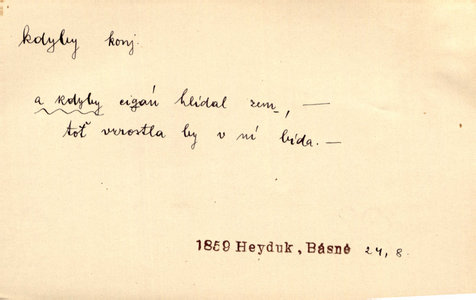 kdyby konj.
a kdyby cigáń hlídal zem, —
toť vzrostla by v ní bída. —
1859 Heyduk, Básně 24, 8.